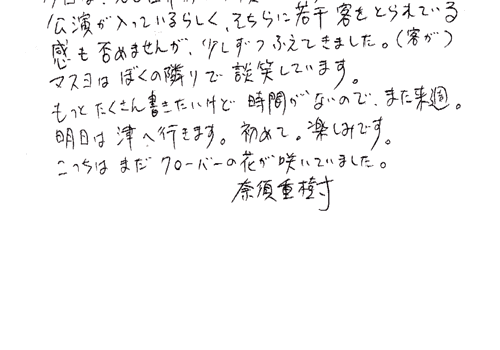 公演が入っているらしく、そちらに若干客をとられている
感も否めませんが、少しずつふえてきました。(客が)
マスヨはぼくの隣りで談笑しています。
もっとたくさん書きたいけど時間がないので、また来週。
明日は津へ行きます。初めて。楽しみです。
こっちはまだクローバーの花が咲いていました。
奈須重樹